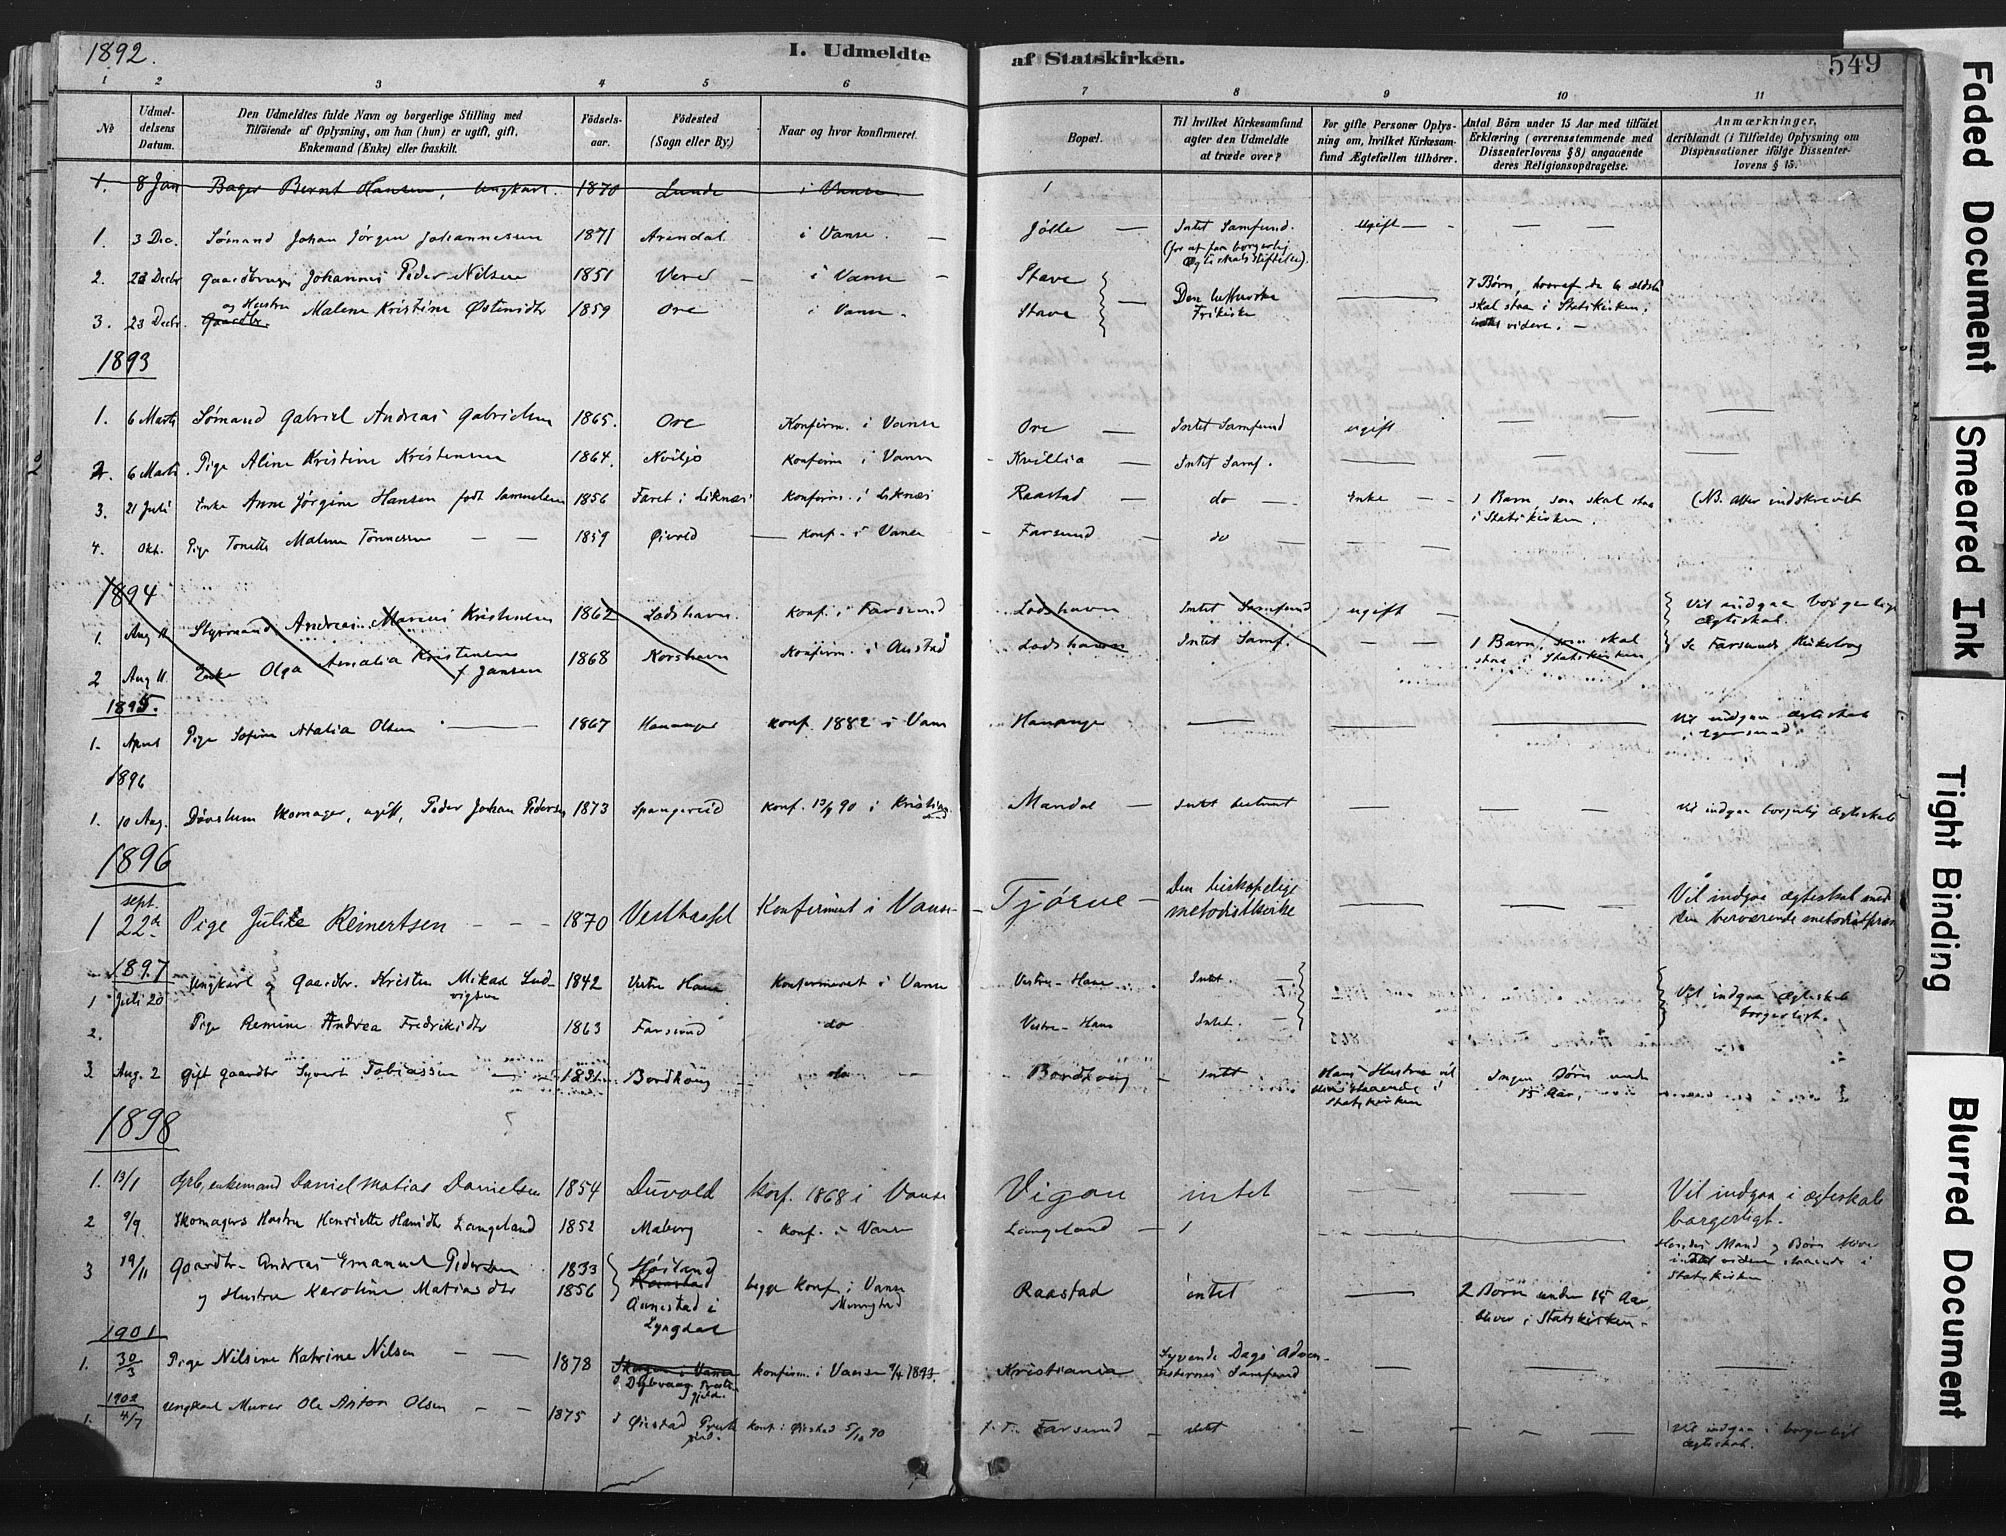 1892.
I. Udmeldte af Statskirken.
549
1 2 3 4 5 6 7 8 9 10 11
No
Udmeldelsens Datum.
Den Udmeldtes fulde Navn og borgerlige Stilling med
Tilføiende af Oplysning, om han (hun) er ugift, gift,
Enkemand (Enke) eller fraskilt.
Fødselsaar.
Fødested
(Sogn eller By.)
Naar og hvor konfirmeret.
Bopæl.
Til hvilket Kirkesamfund
agter den Udmeldte
at træde over?
For gifte Personer Oplysning om, hvilket Kirkesamfund Ægtefællen tilhører.
Antal Børn under 15 Aar med tilføiet
Erklæring (overensstemmende med
Dissenterlovens § 8) angaaende
deres Religionsopdragelse.
Anmærkninger,
deriblandt (i Tilfælde) Oplysning om
Dispensationer ifølge Dissenterlovens § 15.
1. 8 Jan Bager Bernt Hansen, Ungkarl. 1870 Lunde i Vanse
1. 3 Dec. Sømand Johan Jørgen Johannesen 1871 Arendal i Vanse — Jølle — Intet Samfund. Ugift — — —
(for at faa borgerlig
Ægteskabsstiftelse).
2. 23 Decbr Gaardbruger Johannes Peder Nilsen 1851 Vere — i Vanse — Stave
3. 23 Decbr. og Hustru Malene Kristine Østensdtr 1859 Ore i Vanse. Stave — Den lutherske
Frikirke
7 Børn, hvoraf de 6 ældste
skal staa i Statskirken,
videre. —
1893
1. 6 Marts Sømand Gabriel Andreas Gabrielsen 1865. Ore Konfirm. i Vanse Ore — Intet Samfund ugift — —
2. 6 Marts Pige Aline Kristine Kristensen 1864. Konfirm i Vanse Kvillia — Intet Samf. — — —
3. 21 Juli Enke Anne Jørgine Hansen født Samuelsen 1856 Faret i Liknæs Konfirm. i Liknæs Raastad — do — Enke — — 1 Barn som skal staa
i Statskirken.
(NB. atter indskrevet
4. Okt. Pige Tonette Malene Tønnessen — — 1859 Øivold — Konf. i Vanse — Farsund — do — —
1894
1. Aug 11 Styrmand Andreas Marius Kristensen 1862 Lodshavn. Konf. i Farsund Lodshavn Intet Samfund ugift — Vil indgaa borgerlige
Ægteskab.
2 Aug 11. Enke Olga Amalia Kristensen 1868 Korshavn Konfirm. i Austad Lodshavn Intet Samf. — — 1 Barn, som skal
f Jansen
staa i Statskirken
Se Farsunds Kirkebog
1895.
1. April Pige Sofine Atalia Olsen — 1867 Hananger Konf. 1882 i Vanse Hananger — — — Vil indgaa Ægteskab
i Egersund.
1896
1. 10 Aug. Døvstum Skomager, ugift, Peder Johan Pedersen 1873 Spangereid Konf. 13/4 90 i Kristiansand Mandal — Intet bestemt — — — Vil indgaa borgerlig Ægteskab
1896
1 sept. 22de Pige Julie Reinertsen — — — 1870 Vesthassel Konfirmeret i Vanse — Tjørve — Den biskopelige
metodistkirke
— — — Vil indgaa ægteskab med
den herværende metodistpræst
1897
1 Juli 20 Ungkarl og Gaardbr. Kristen Mikael Ludvigsen 1842 Vestre Hane Konfirmeret i Vanse Vestre-Hane Intet. —
2. Pige Remine Andrea Fredriksdtr 1863 Farsund do Vestre-Hane Intet. — Vil indgaa Ægteskab
borgerligt.
3. Aug. 2 gift gaardbr Syvert Tobiassen — 1831 Bordhaug do — Bordhaug — Intet Hans Hustru vil
blive staaende i
Statskirken
Ingen Børn under
15 Aar.
1898
1. 13/1 Grb, enkemand Daniel Matias Danielsen 1854 Duvold Konf. 1868 i Vanse Vigan intet — — Vil indgaa i ægteskab
borgerligt.
2 9/9 Skomagers Hustru Henriette Hansdtr Langeland 1852 Maberg — Konf. i Vanse Langeland — 1 — — Hendes Mand og Børn blive
indtil videre staaende i
Statskirken
3 19/11 Gaardbr. Andreas Emanuel Pedersen 1833 Høiland
og Hustru Karoline Matiasdtr 1856 Raastad begge konf. i Vanse Raastad intet — 2 Børn under 15 Aar,
Aunestad i
Lyngdal
bliver i Statskirken.
1901
1. 30/3 Pige Nilsine Katrine Nilsen — — 1878 Skagen i Vanse Konfirm. i Vanse 9/4 1893. Kristiania Syvende Dags Adventisternes Samfund — — —
Dybvaag Præstegjeld.
1902
1. 4/7 Ungkarl Murer Ole Anton Olsen — — 1875 Øiestad Præstegjeld. konf. i Øiestad 5/10 90 f. T. Farsund — intet — — — Vil indgaa i borgerligt
Ægteskab.
Faded Document
Smeared Ink
Tight Binding
Blurred Document